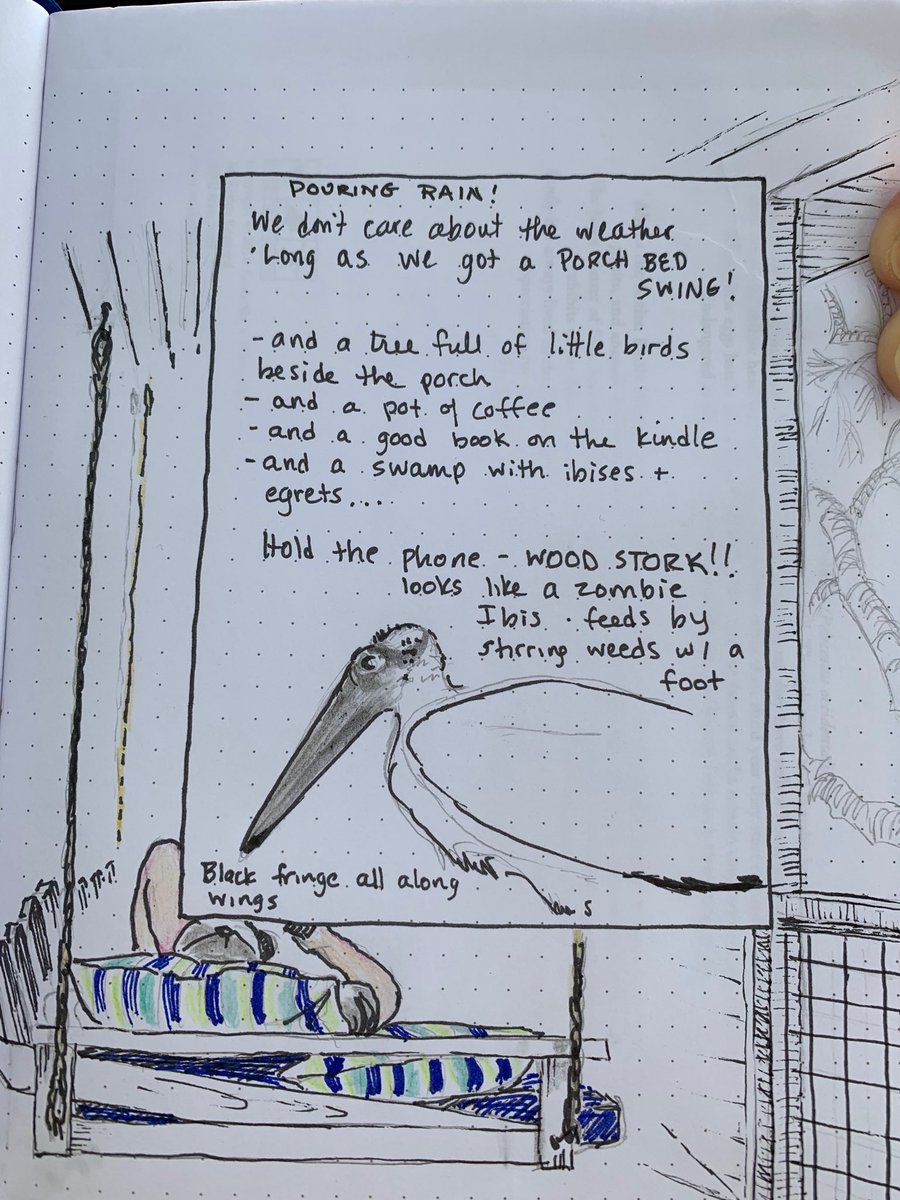 POURING RAIN!
We don't care about the weather
'Long as we got a PORCH BED
SWING!
- and a tree full of little birds
beside the porch
- and a pot of coffee
- and a good book on the kindle
- and a swamp with ibises +
egrets....
Hold the phone - WOOD STORK!!
looks like a zombie
Ibis. feeds by
stirring weeds w/ a
foot
Black fringe all along
wings